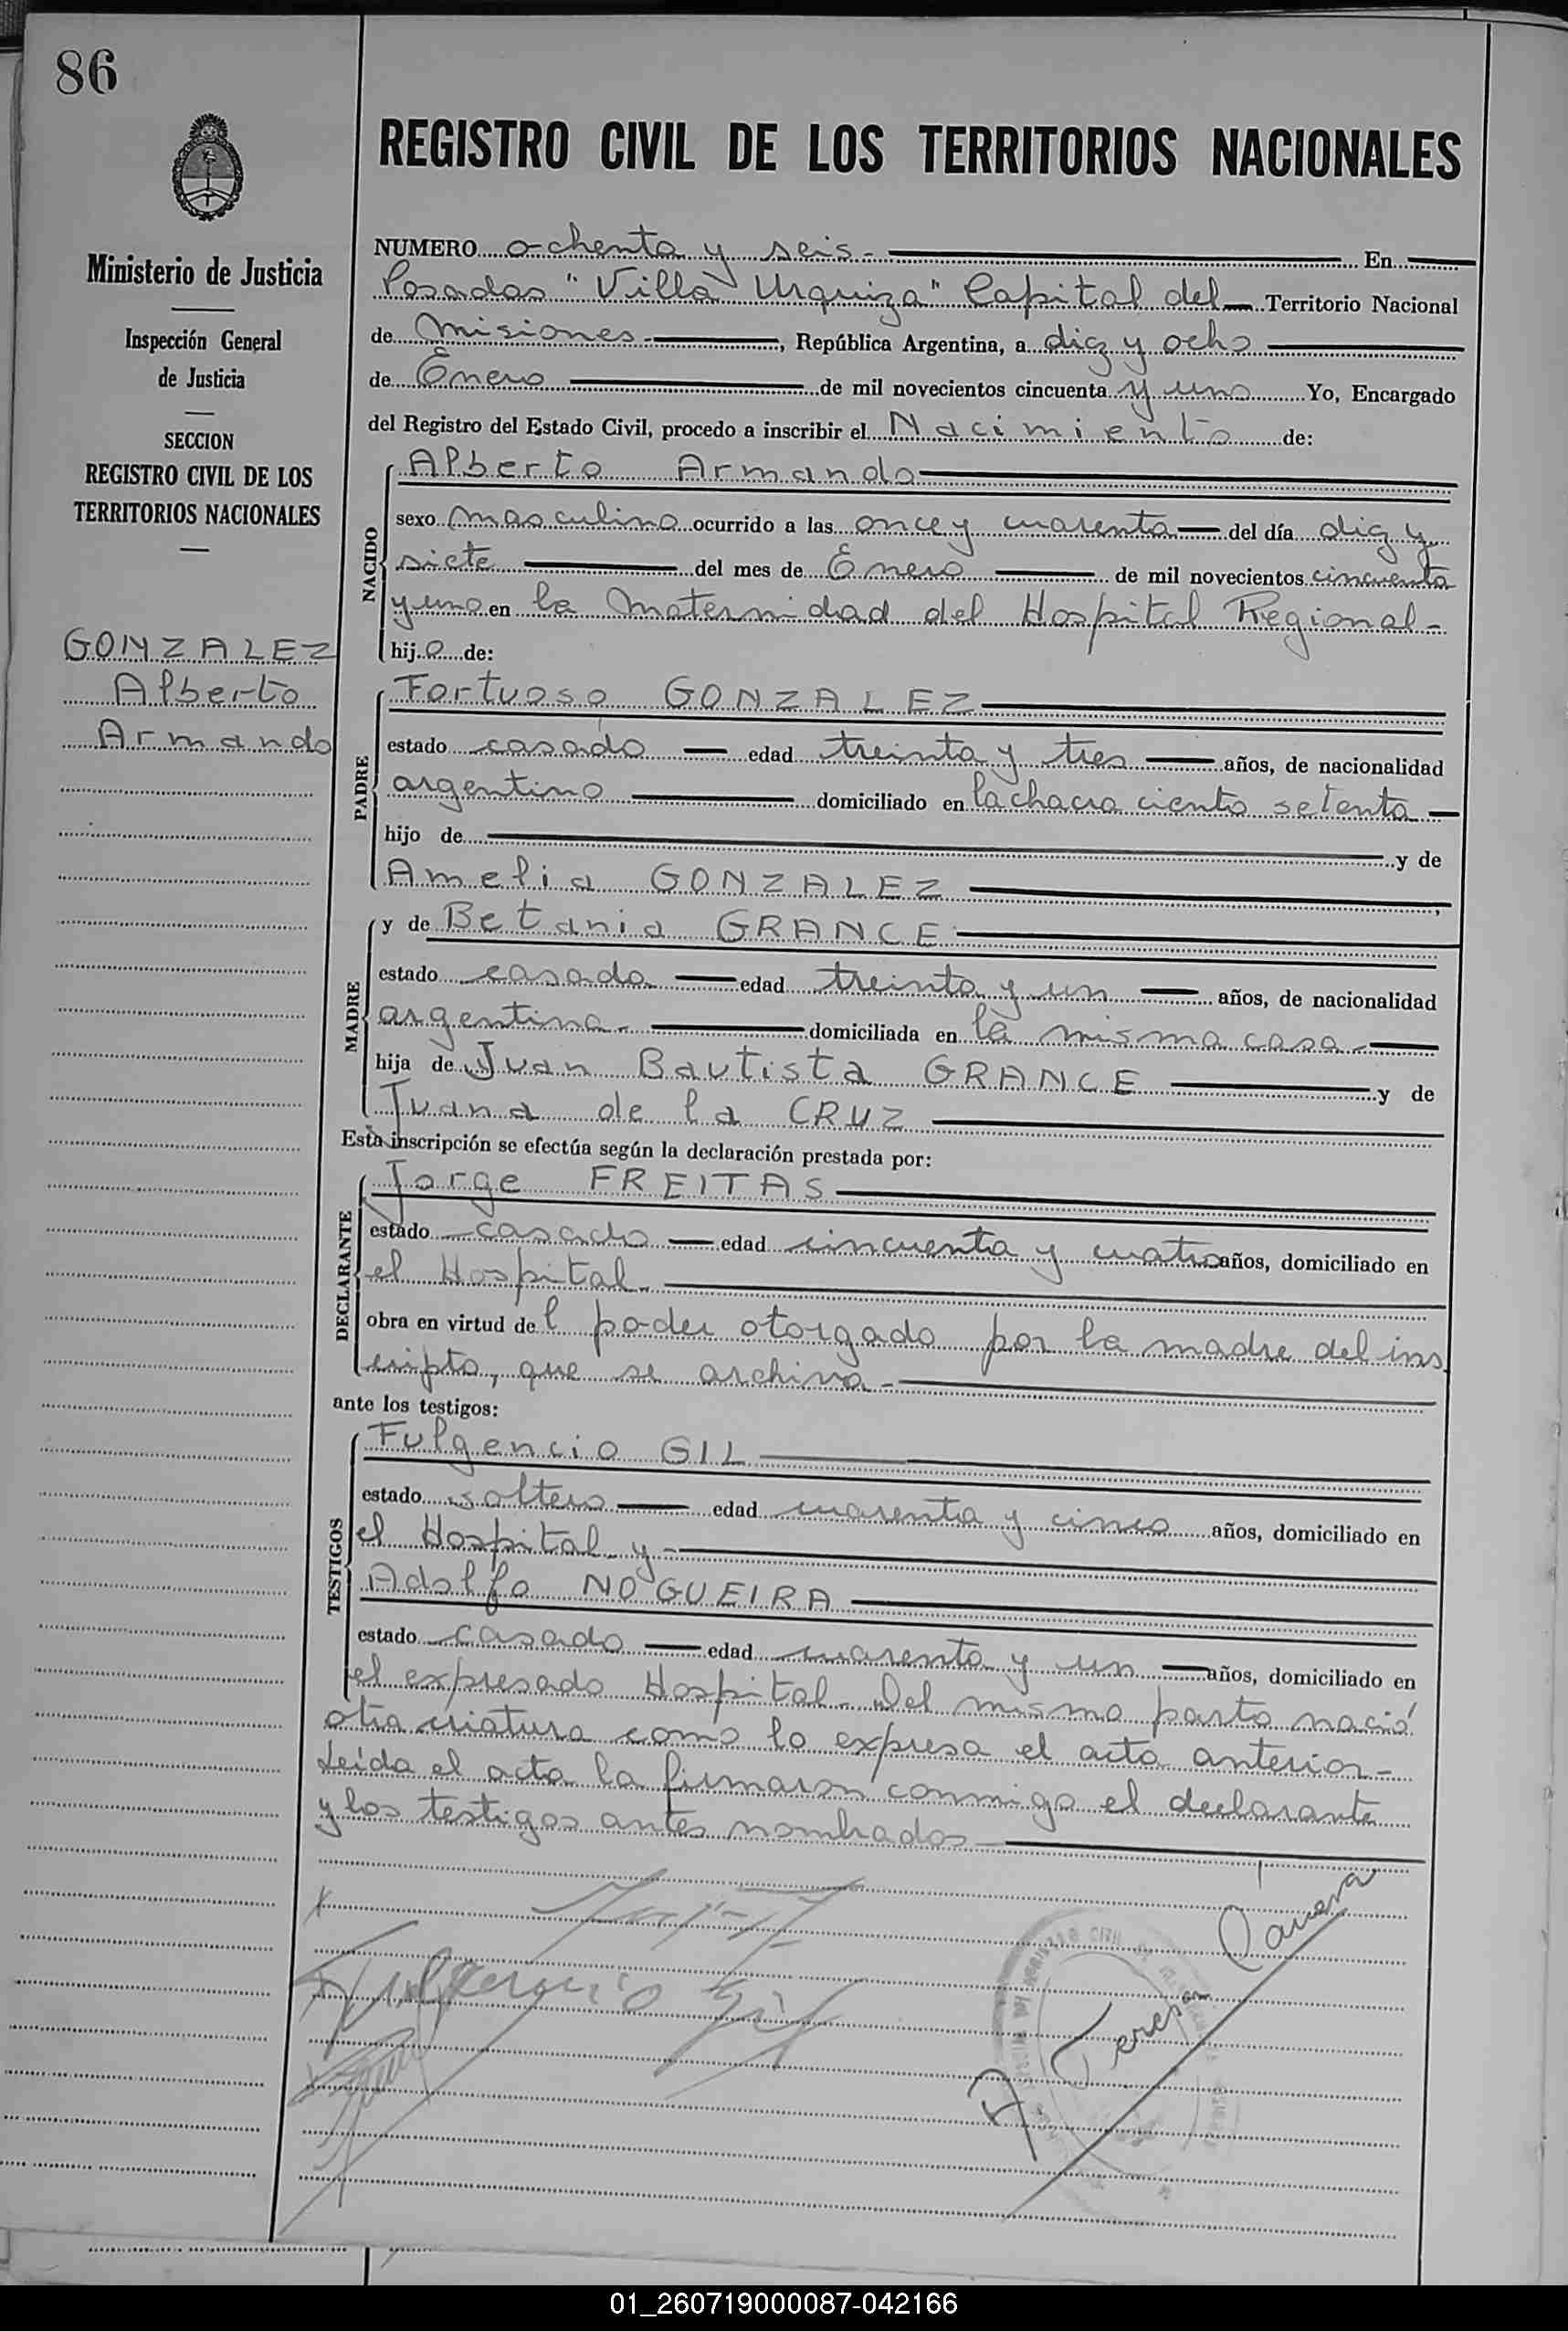 86
REGISTRO CIVIL DE LOS TERRITORIOS NACIONALES
Ministerio de Justicia
Inspección General
de Justicia
SECCION
REGISTRO CIVIL DE LOS
TERRITORIOS NACIONALES
GONZALEZ
Alberto
Armando
NUMERO ochenta y seis.- En
Posadas "Villa Urquiza" Capital del Territorio Nacional
de Misiones.-, República Argentina, a diez y ocho
de Enero de mil novecientos cincuenta y uno Yo, Encargado
del Registro del Estado Civil, procedo a inscribir el Nacimiento de:
NACIDO
Alberto Armando
sexo masculino ocurrido a las once y cuarenta del día diez y
siete del mes de Enero de mil novecientos cincuenta
y uno en la Maternidad del Hospital Regional-
hijo de:
PADRE
Fortuoso GONZALEZ
estado casado edad treinta y tres años, de nacionalidad
argentino domiciliado en la chacra ciento setenta
hijo de y de
Amelia GONZALEZ
MADRE
y de Betania GRANCE
estado casada edad treinta y un años, de nacionalidad
argentina.- domiciliada en la misma casa.-
hija de Juan Bautista GRANCE y de
Juana de la CRUZ
Esta inscripción se efectúa según la declaración prestada por:
DECLARANTE
Jorge FREITAS
estado casado edad cincuenta y cuatro años, domiciliado en
el Hospital.
obra en virtud del poder otorgado por la madre del ins
cripto, que se archiva.-
ante los testigos:
TESTIGOS
Fulgencio GIL
estado soltero edad cuarenta y cinco años, domiciliado en
el Hospital y
Adolfo NOGUEIRA
estado casado edad cuarenta y un años, domiciliado en
el expresado Hospital. Del mismo parto nació
otra criatura como lo expresa el acta anterior-
Leída el acta la firmaron conmigo el declarante
y los testigos antes nombrados
Fulgencio Gil
A Teresa
01_260719000087-042166